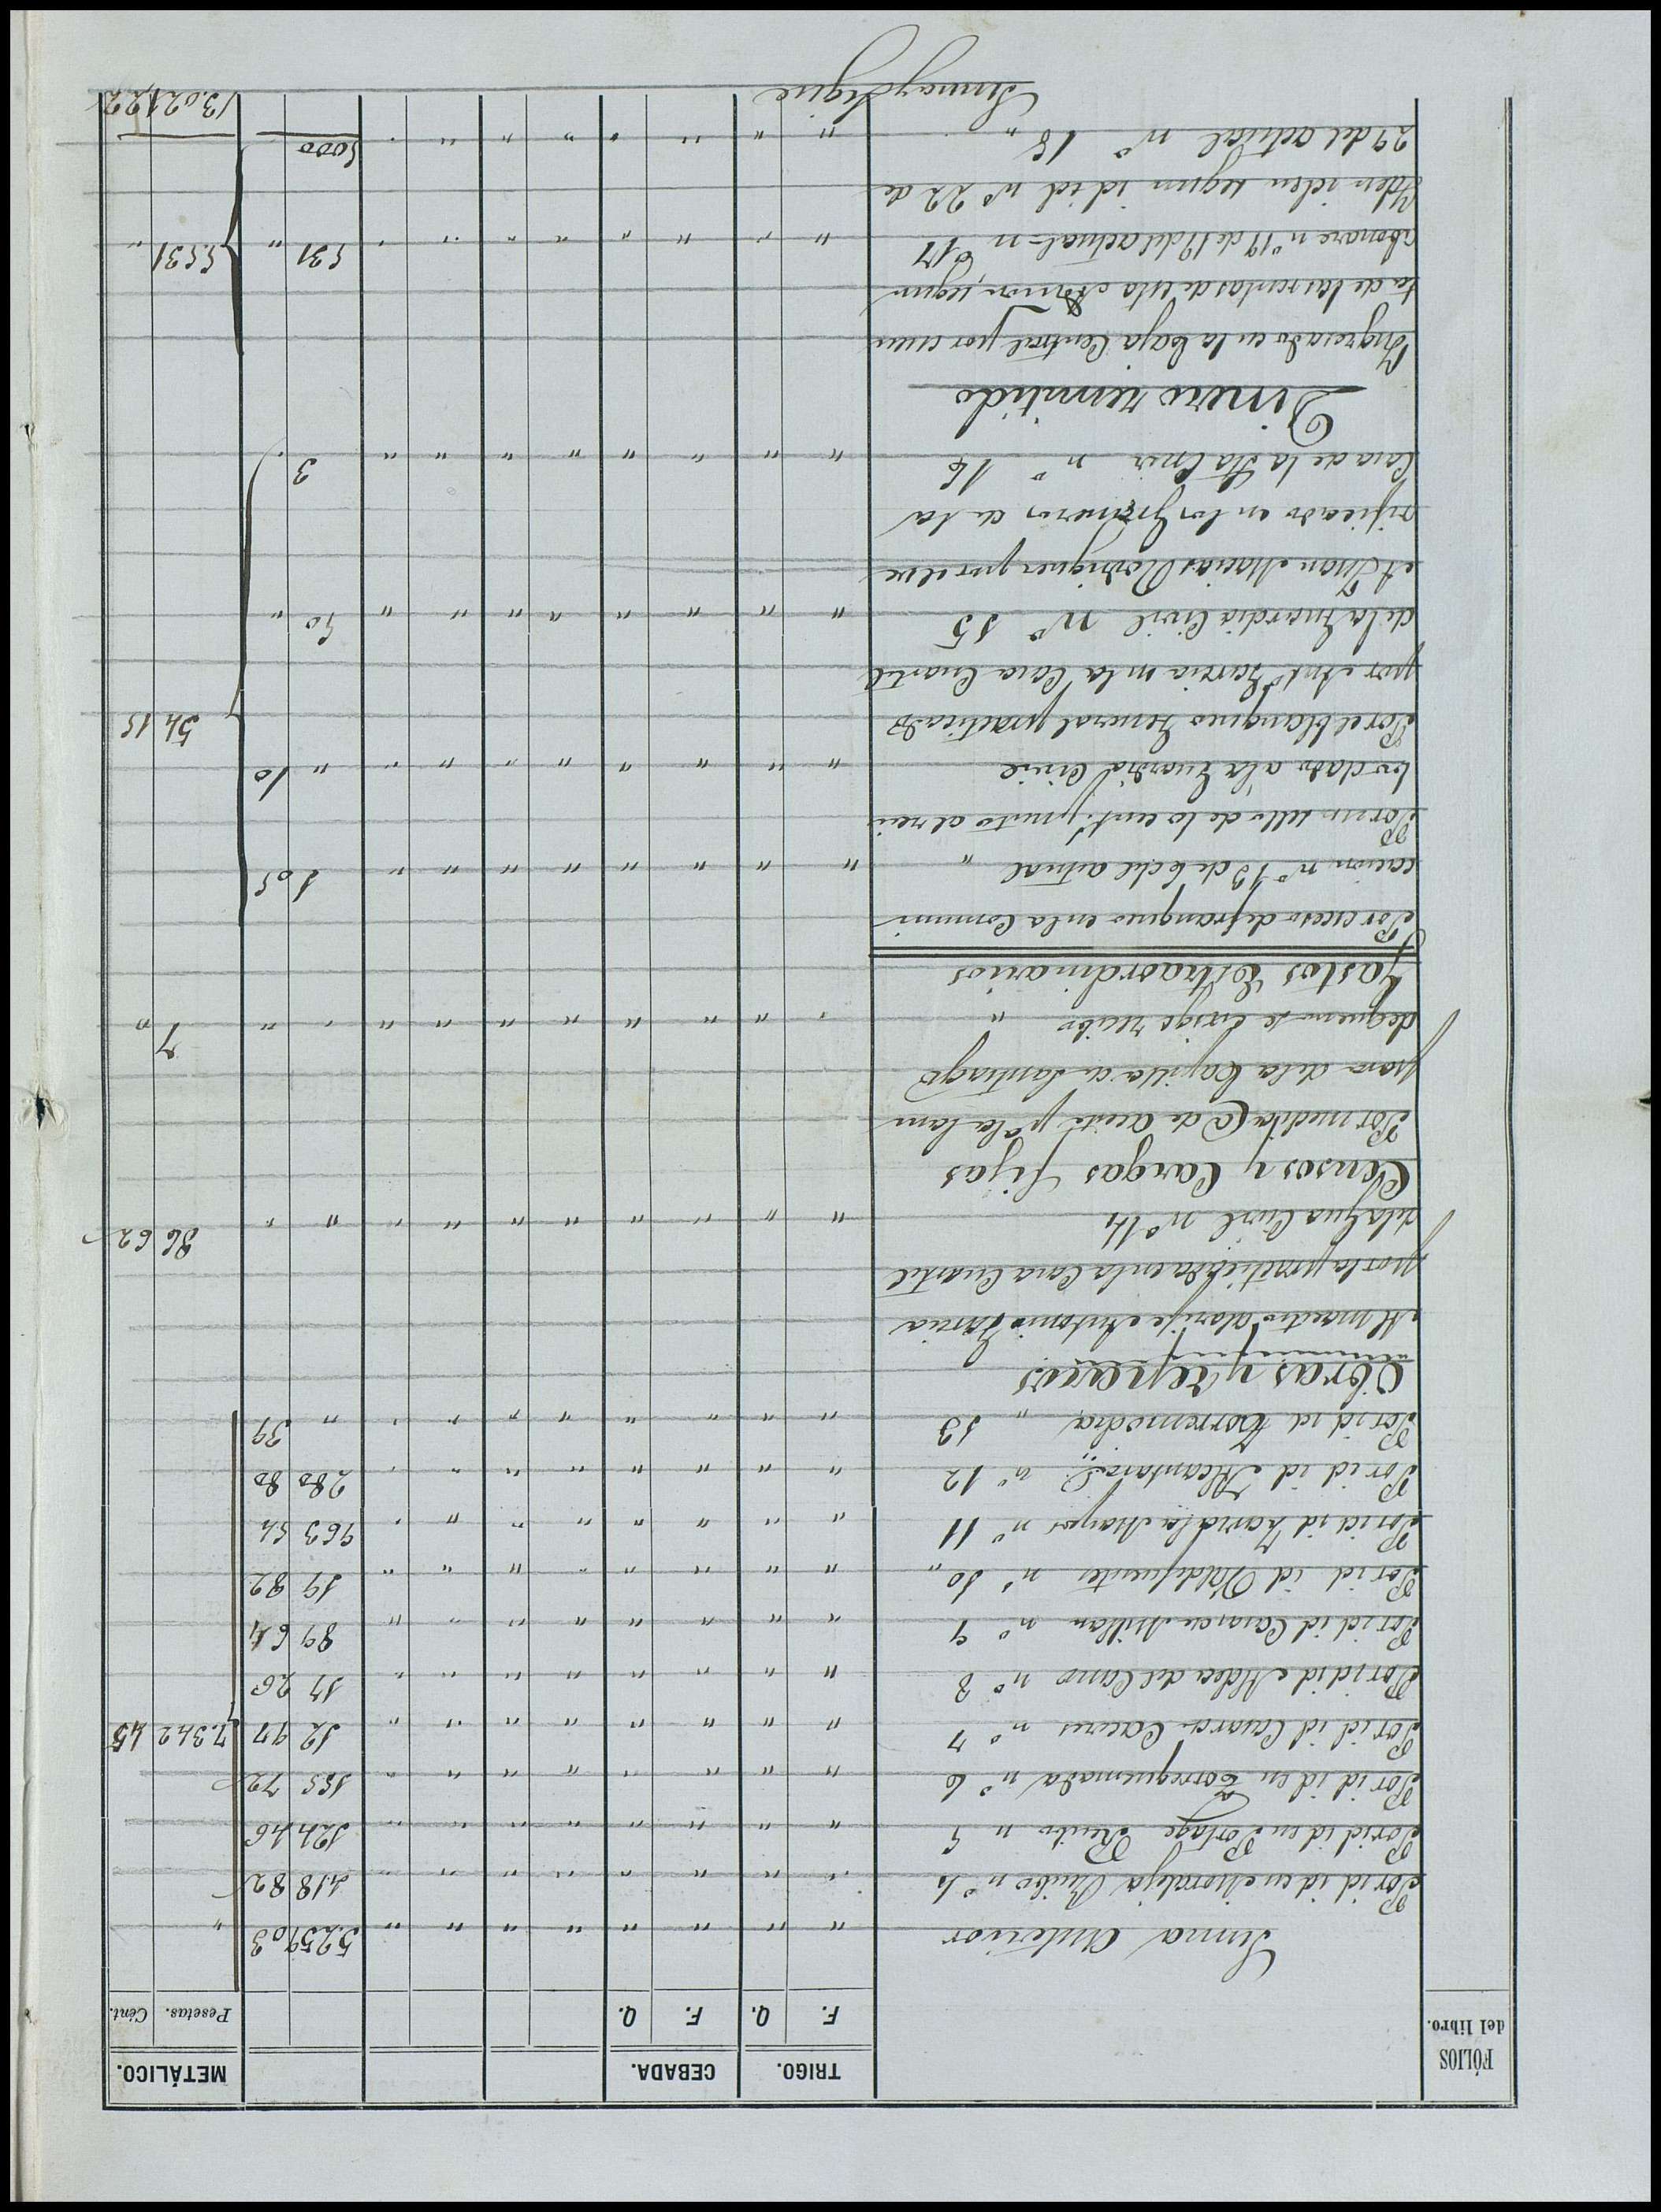 FÓLIOS del libro. TRIGO. CEBADA. METÁLICO.
F. Q. F. Q. Pesetas. Cént.
Suma Anterior " " " " " " " " " " 5.259 03 "
Por id id en Moraleja Recibo nº 4 " " " " " " " " " " 418 82
Por id id en Portage Recibo n 5 " " " " " " " " " " 124 46
Por id id en Torrequemada nº 6 " " " " " " " " " " 155 72
Por id id Casar de Caceres nº 7 " " " " " " " " " " 12 97 7.342 45
Por id id Aldea del Cano nº 8 " " " " " " " " " " 17 26
Por id id Casas de Millan nº 9 " " " " " " " " " " 89 64
Por id id Valdefuentes nº 10 " " " " " " " " " " " 19 82
Por id id Zarza la Mayor nº 11 " " " " " " " " " " 963 54
Por id id Alcantara nº 12 " " " " " " " " " " 280 80
Por id id Torremocha " 13 " " " " " " " " " " " 39
Obras y reparos
Al maestro Alarife Antonio Garcia
por la practicada en la Casa Cuartel
de la Gua Civil nº 14 " " " " " " " " " " " " 86 62
Censos y Cargas fijas
Por media @ de aceite pª la lam
para de la Capilla de Santiago
de que no se exige recibo " " " " " " " " " " " " " 7 "
Gastos Extraordinarios
Por exceso de franqueo en la Comuni
cacion nº 13 de 6 del actual " " " " " " " " " " " 1 05
Por un sello de 10 cent. puesto al reci
bo dado a la Guardia Civil " " " " " " " " " " " 10
Por el blanqueo general practicado 54 15
por Antº Garcia en la Casa Cuartel
de la Guardia Civil Nº 15 " " " " " " " " " " 50 "
A Juan Macias Rodriguez por el ve
rificado en los graneros de la
Casa de la Sta Cruz nº 16 " " " " " " " " " " 3 "
Dinero remitido
Ingresado en la Caja Central por cuen
ta de las rentas de esta Admon segun
abonare nº 19 de 19 del actual = nº 17 " " " " " " " " " " 531 " 5.531 "
Iden iden segun id id nº 22 de
29 del actual nº 18 " " " " " " " " " " " 5000
Suma y sigue 13.021,22